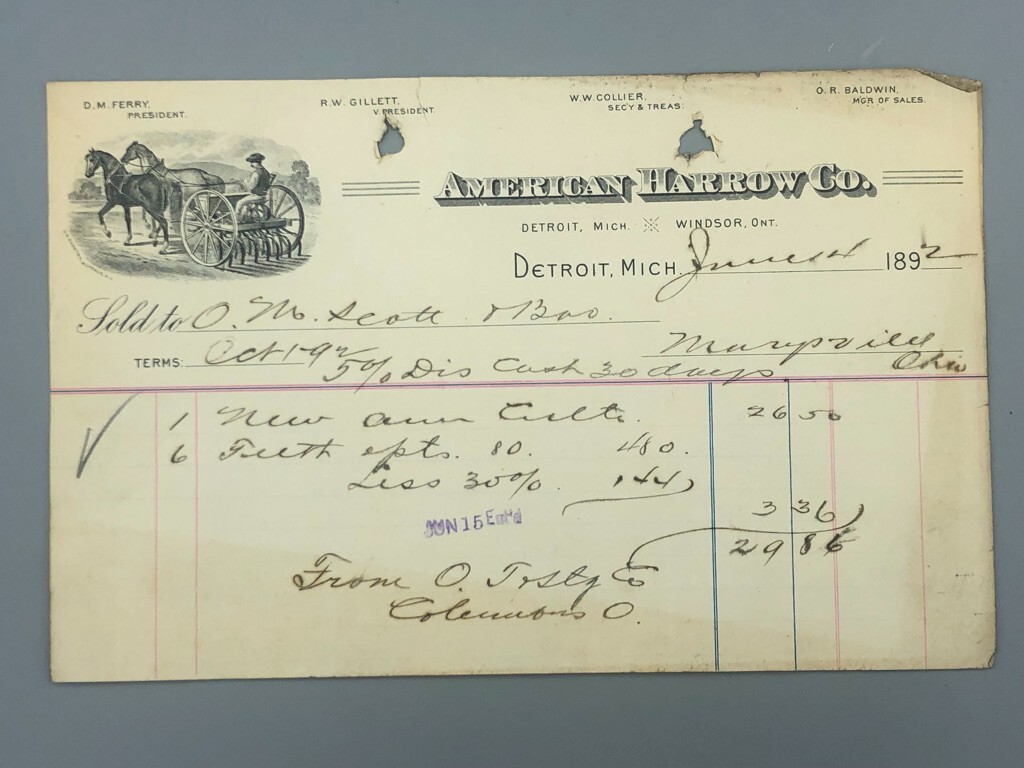 D. M. FERRY, PRESIDENT.
R. W. GILLETT, V. PRESIDENT.
W. W. COLLIER, SEC'Y & TREAS.
O. R. BALDWIN, MGR OF SALES.
AMERICAN HARROW CO.
DETROIT, MICH. WINDSOR, ONT.
DETROIT, MICH. June 14 1892
Sold to O. M. Scott & Bro.
Marysville
TERMS: Oct 1-92 Ohio
5% Dis Cash 30 days
1 New Am Cult. 26 50
6 Teeth & pts. 80. 480.
Less 30%. 144
3 36
JUN 15 Ent'd
29 86
From O.
Columbus O.